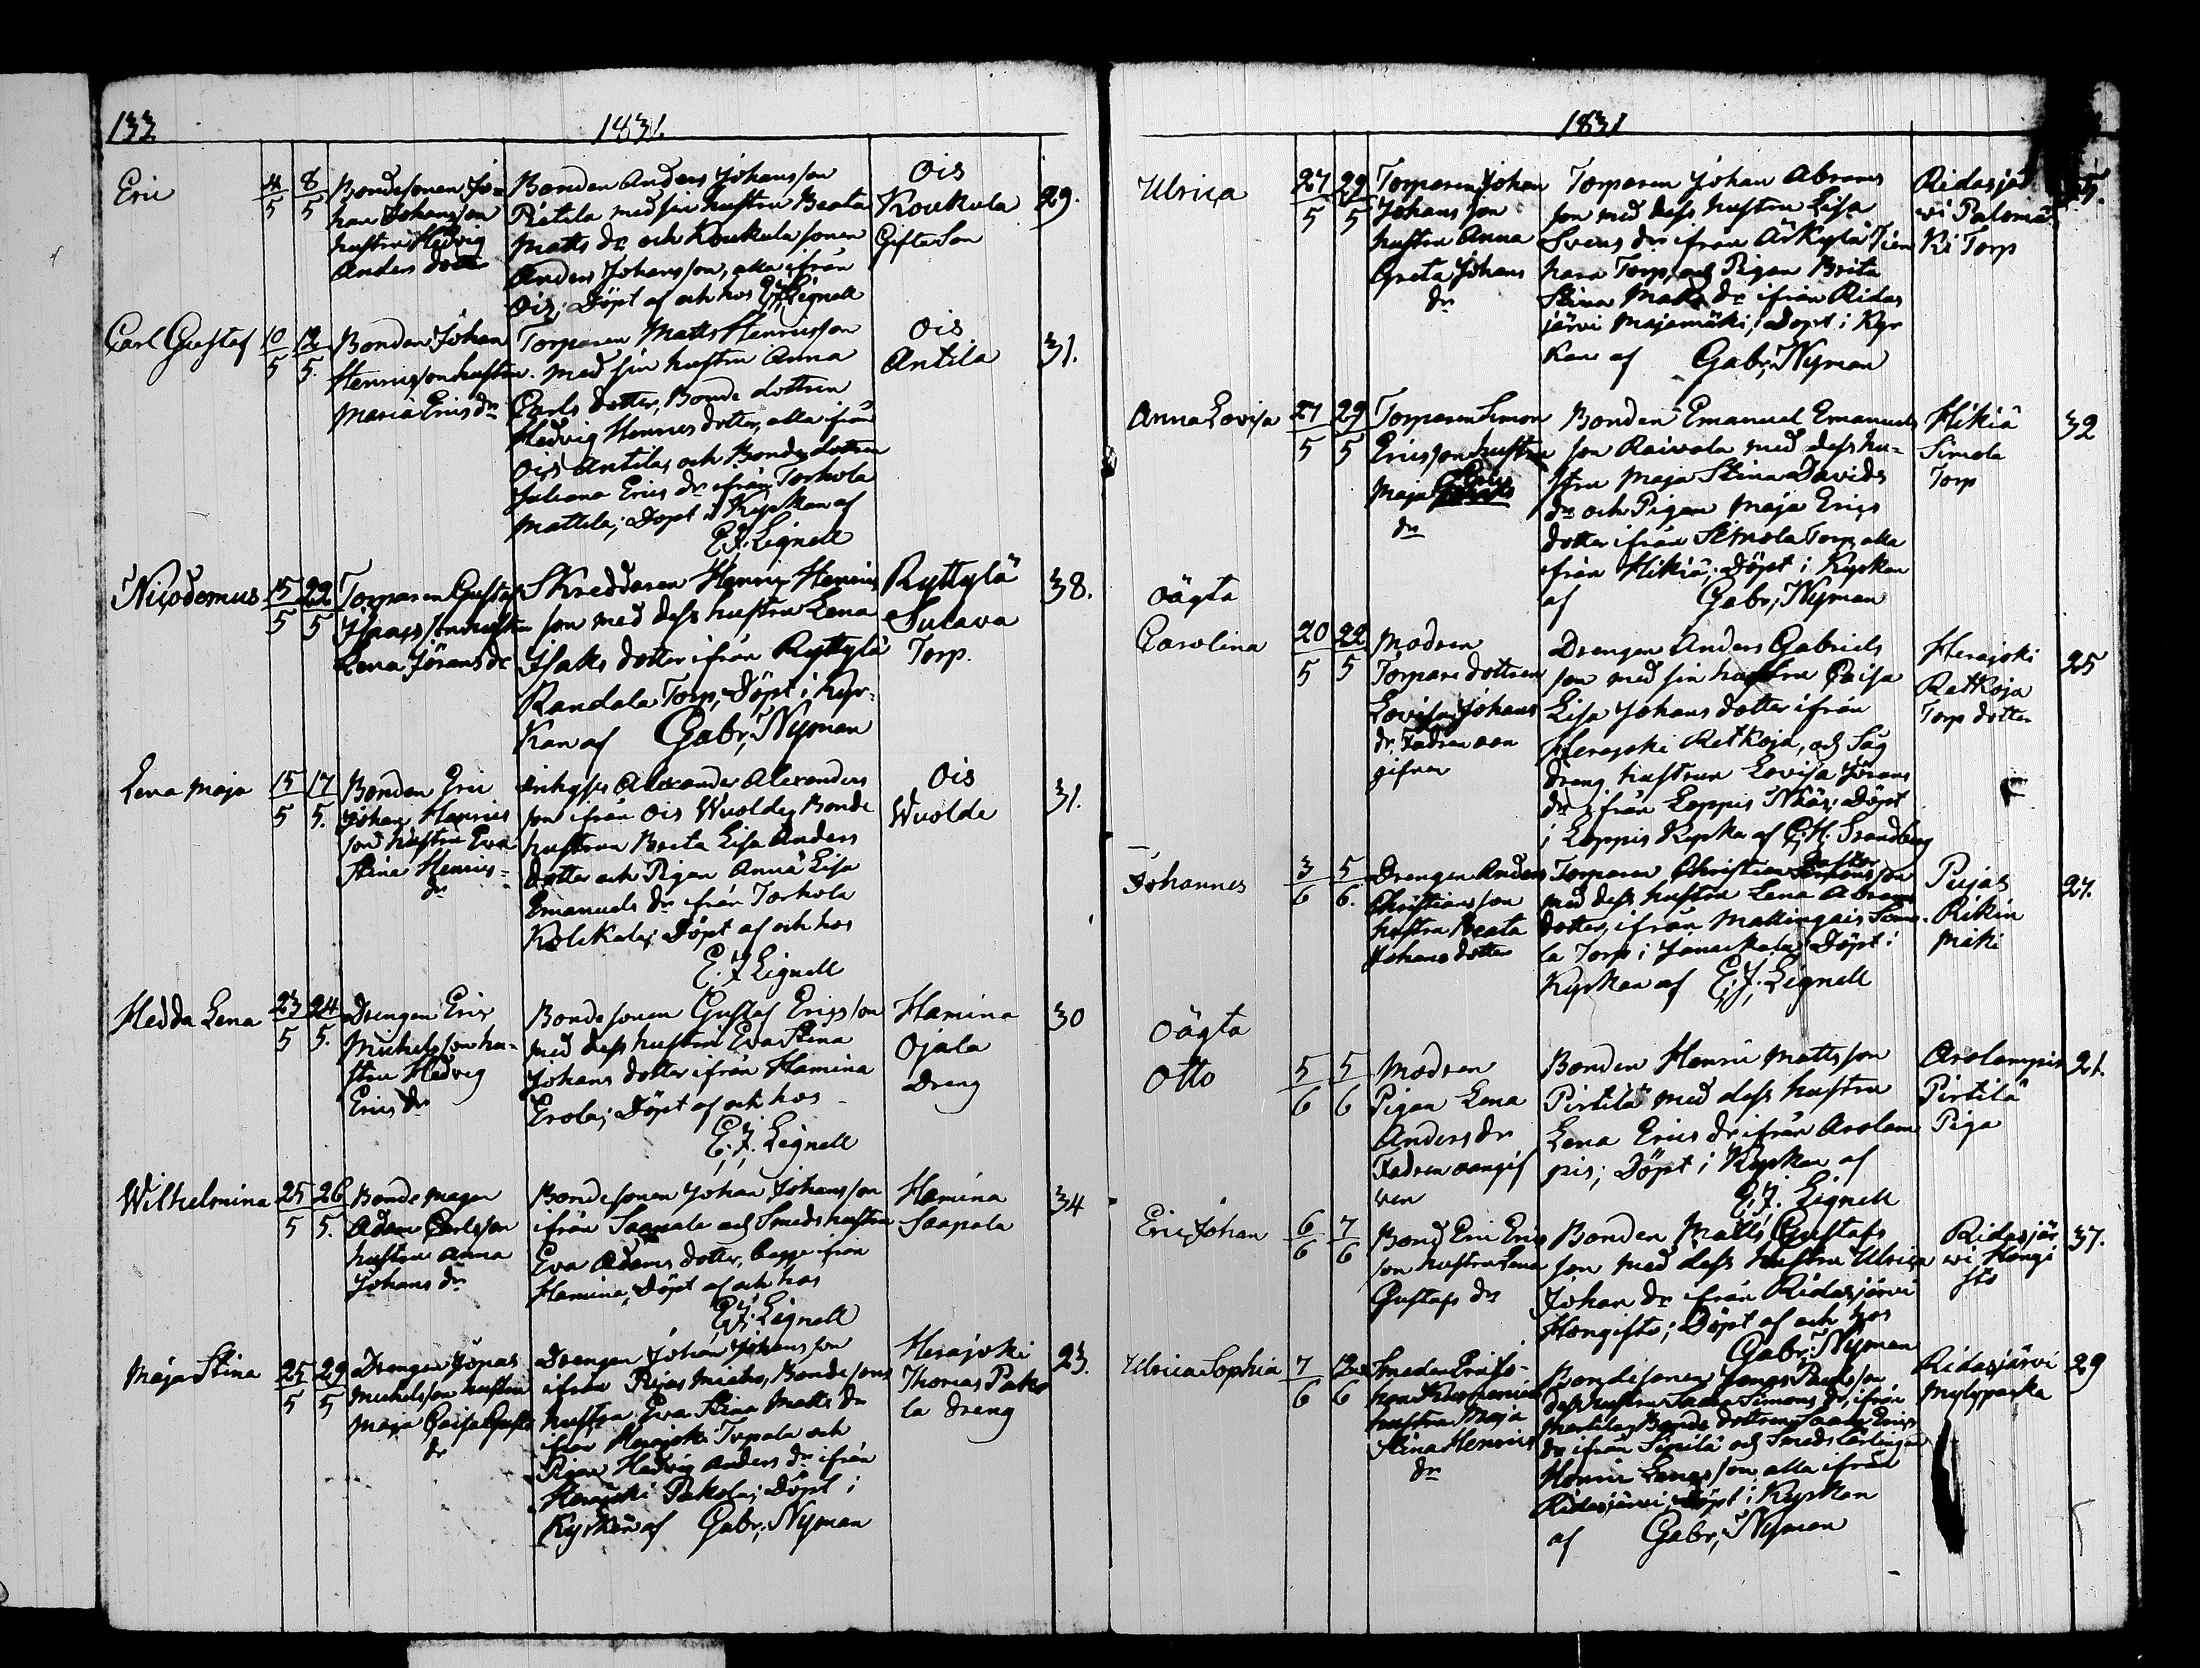 133
1831.
Eric
4/5
8/5
Bondesonen Jo=
han Johansson
hustru Hedvig
Anders dotter
Bonden Anders Johansson
Rétila med sin hustru Beata
Matts dr och Koukula sonen
Anders Johansson, alla ifrån
Ois; Döpt af och hos E.J. Lignell
Ois
Koukula
Gifte Son
29.
Carl Gustaf
10/5
12/5.
Bonden Johan
Henricsson hustru
Maria Erics dr
Torparen Matts Henricsson
med sin hustru Anna
Carls dotter, Bonde dottren
Hedvig Henrics dotter, alla ifrån
Ois Antila, och Bonde dottren
Juliana Erics dr ifrån Torhola
Mattila; Döpt i Kyrkan af
E.J. Lignell
Ois
Antila
31.
Nicodemus
15/5
22/5
Torparen Gustaf
Isaacsson hustru
Lena Jörans dr
Skreddaren Henric Henrics
son med dess hustru Lena
Isaks dotter ifrån Ryttylä
Randala Torp; Döpt i Kyr-
kan af Gabr; Nyman
Ryttylä
Sulava
Torp.
38.
Lena Maja
15/5
17/5.
Bonden Eric
Johan Henrics
son hustru Eva
Stina Henrics=
dr
Alexander Alexanders
son ifrån Ois Wuolde, Bonde
hustrun Brita Lisa Anders
dotter och Pigan Anna Lisa
Emanuels dr ifrån Torhola
Kolikala; Döpt af och hos
E.J. Lignell
Ois
Wuolde
31.
Hedda Lena
23/5
24/5.
Drengen Eric
Michelsson hu-
stru Hedvig
Erics dr
Bondesonen Gustaf Ericsson
med dess hustru Eva Stina
Johans dotter ifrån Hamina
Erola; Döpt af och hos
E.J. Lignell
Hamina
Ojala
Dreng
30
Wilhelmina
25/5
26/5.
Bonde magen
Adam Carlsson
hustru Anna
Johans dr
Bondesonen Johan Johansson
ifrån Saapala och Smeds hustru
Eva Adams dotter, begge ifrån
Hamina; Döpt af och hos
E.J. Lignell
Hamina
Saapala
34
Maja Stina
25/5
29/5
Drengen Jonas
Michelsson hustru
Maja Caisa Gustafs
dr
Drengen Johan Johansson
ifrån Pujas Micko, Bondesons
hustrun Eva Stina Matts dr
ifrån Herajoki Topala och
Pigan Hedvig Anders dr ifrån
Herajoki Pakola; Döpt i
Kyrkan af Gabr; Nyman
Herajoki
Thomas Pako
la Dreng
23.
1831
Ulrica
27/5
29/5
Torparen Johan
Johansson
hustru Anna
Greta Johans
dr
Torparen Johan Abrams
son med dess hustru Lisa
Svens dr ifrån Ärkylä
Torp, och Pigan Brita
Stina Matts dr ifrån Ridas
järvi Majamäki; Döpt i Kyr
kan af Gabr; Nyman
Ridasjär
wi Palomä
ki Torp
Anna Lovisa
27/5
29/5
Torparen Simon
Ericsson hustru
Maja
dr
Bonden Emanuel Emanuels
son Raivola med dess hu-
stru Maja Stina Davids
dr och Pigan Maja Erics
dotter ifrån Simola Torp, alla
ifrån Hikiä; Döpt i Kyrkan
af Gabr; Nyman
Hikiä
Simola
Torp
32
Oägta
Carolina
20/5
22/5
Modren
Torpare dottren
Lovisa Johans
dr, Fadren oan
gifven
Drengen Anders Gabriels
son med sin hustru Caisa
Lisa Johans dotter ifrån
Herajoki Retkoja, och Såg
dreng hustrun Lovisa Jörans
dr ifrån Loppis; Döpt
i Loppis Kyrka af
Herajoki
Retkoja
Torp dotter
25
Johannes
3/6
5/6.
Drengen Anders
Christiansson
hustru Beata
Johans dotter
Torparen Christian
med dess hustru Lena Abrams
dotter, ifrån Mallingais
la Torp i Janackala; Döpt i
Kyrkan af E.J. Lignell
Pujas
Rikin
Mäki
27.
Oägta
Otto
5/6
5/6
Modren
Pigan Lena
Anders dr
Fadren oangif
ven
Bonden Henric Mattsson
Pirtilä med dess hustru
Lena Erics dr, ifrån Arolam
pis; Döpt i Kyrkan af
E.J. Lignell
Arolampis
Pirtilä
Piga
21.
Eric Johan
6/6
7/6
Bond Eric Erics
son hustru Lena
Gustafs dr
Bonden Matts Gustafs
son med dess hustru Ulrica
Johans dr ifrån Ridasjärvi
Hongisto; Döpt af och hos
Gabr; Nyman
Ridasjär
wi Hongi
sto
37.
Ulrica Sophia
7/6
Smeden Eric Jo-
han
hustru Maja
Stina Henrics
dr
Bondesonen Jonas Paulsson
dess hustru Saara Simons dr, ifrån
Martila, Bonde dottren Saara Erics
dr ifrån Sipilä och Smeds lärlingen
Henric Larsson, alla ifrån
Ridasjärvi; Döpt i Kyrkan
af Gabr; Nyman
Ridasjärvi
Myllypacka
29